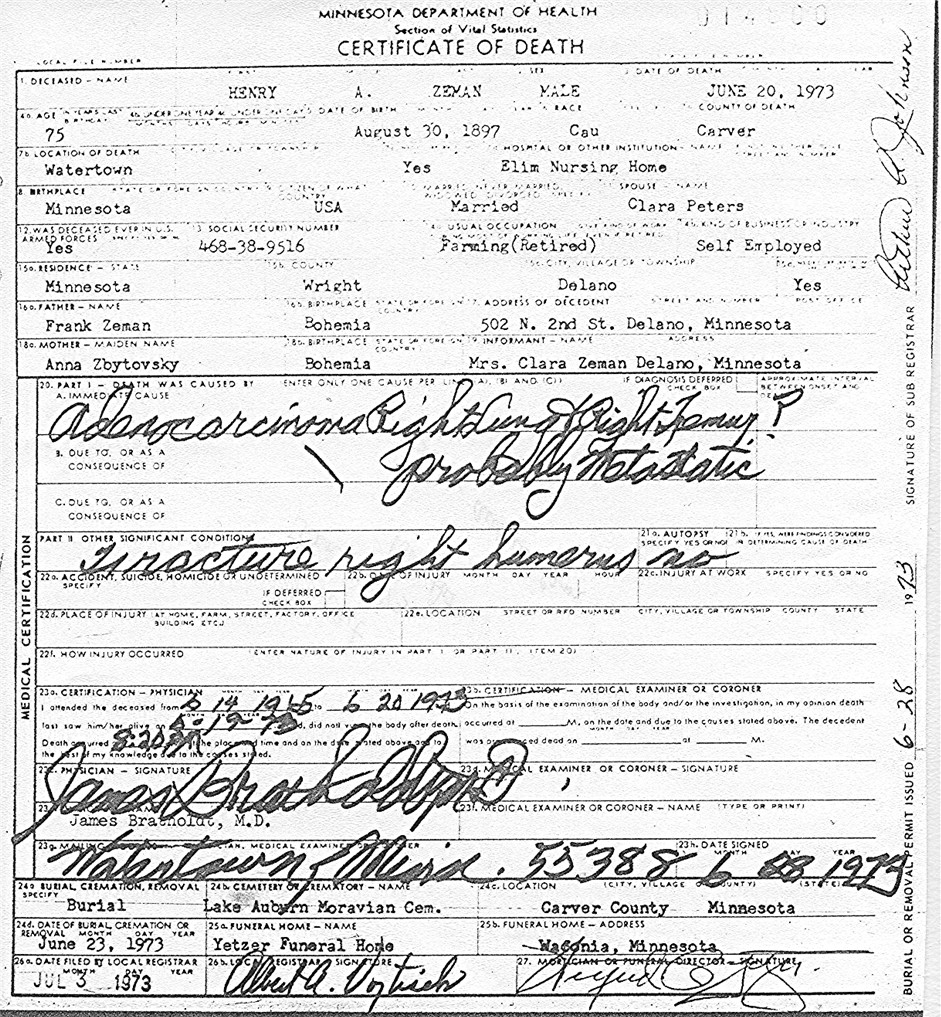 MINNESOTA DEPARTMENT OF HEALTH
Section of Vital Statistics
CERTIFICATE OF DEATH
LOCAL FILE NUMBER
1. DECEASED – NAME SEX DATE OF DEATH
HENRY A. ZEMAN MALE JUNE 20, 1973
4a. AGE DATE OF BIRTH RACE COUNTY OF DEATH
75 August 30, 1897 Cau Carver
7b. LOCATION OF DEATH HOSPITAL OR OTHER INSTITUTION – NAME
Watertown Yes Elim Nursing Home
8. BIRTHPLACE STATE OR FOREIGN COUNTRY CITIZEN OF WHAT COUNTRY MARRIED, NEVER MARRIED, WIDOWED, DIVORCED SPOUSE – NAME
Minnesota USA Married Clara Peters
12. WAS DECEASED EVER IN U.S. ARMED FORCES 13. SOCIAL SECURITY NUMBER USUAL OCCUPATION KIND OF BUSINESS OR INDUSTRY
Yes 468-38-9516 Farming(Retired) Self Employed
15a. RESIDENCE – STATE 15b. COUNTY 15c. CITY, VILLAGE OR TOWNSHIP
Minnesota Wright Delano Yes
16a. FATHER – NAME 16b. BIRTHPLACE STATE OR FOREIGN COUNTRY 17. ADDRESS OF DECEDENT STREET AND NUMBER POST OFFICE
Frank Zeman Bohemia 502 N. 2nd St. Delano, Minnesota
18a. MOTHER – MAIDEN NAME 18b. BIRTHPLACE STATE OR FOREIGN COUNTRY 19. INFORMANT – NAME ADDRESS
Anna Zbytovsky Bohemia Mrs. Clara Zeman Delano, Minnesota
20. PART I – DEATH WAS CAUSED BY ENTER ONLY ONE CAUSE PER LINE (A), (B) AND (C) IF DIAGNOSIS DEFERRED CHECK BOX APPROXIMATE INTERVAL BETWEEN ONSET AND
A. IMMEDIATE CAUSE
Adenocarcinoma Right Lung & Right Femur ?
B. DUE TO, OR AS A CONSEQUENCE OF
probably Metastatic
C. DUE TO, OR AS A CONSEQUENCE OF
PART II OTHER SIGNIFICANT CONDITIONS 21a. AUTOPSY SPECIFY YES OR NO 21b. IF YES, WERE FINDINGS CONSIDERED IN DETERMINING CAUSE OF DEATH
Fracture right humerus no
22a. ACCIDENT, SUICIDE, HOMICIDE OR UNDETERMINED SPECIFY IF DEFERRED CHECK BOX 22b. DATE OF INJURY MONTH DAY YEAR HOUR 22c. INJURY AT WORK SPECIFY YES OR NO
22d. PLACE OF INJURY (AT HOME, FARM, STREET, FACTORY, OFFICE BUILDING ETC.) 22e. LOCATION STREET OR RFD NUMBER CITY, VILLAGE OR TOWNSHIP COUNTY STATE
22f. HOW INJURY OCCURRED (ENTER NATURE OF INJURY IN PART I OR PART II, ITEM 20)
MEDICAL CERTIFICATION
23a. CERTIFICATION – PHYSICIAN 23b. CERTIFICATION – MEDICAL EXAMINER OR CORONER
I attended the deceased from 14 to 6 20 1973 On the basis of the examination of the body and/or the investigation, in my opinion death
last saw him/her alive on 19 73, did not view the body after death. occurred at M., on the date and due to the causes stated above. The decedent
Death occurred at the place and time and on the date stated above and to was pronounced dead on at M.
the best of my knowledge due to the causes stated.
23c. PHYSICIAN – SIGNATURE 23d. MEDICAL EXAMINER OR CORONER – SIGNATURE
James Bratholdt MD
23f. MEDICAL EXAMINER OR CORONER – NAME (TYPE OR PRINT)
James Bratholdt, M.D.
23g. MAILING 23h. DATE SIGNED MONTH DAY YEAR
Watertown, Minn. 55388 6 28 1973
24a. BURIAL, CREMATION, REMOVAL SPECIFY 24b. CEMETERY OR CREMATORY – NAME 24c. LOCATION (CITY, VILLAGE OR COUNTY) (STATE)
Burial Lake Auburn Moravian Cem. Carver County Minnesota
24d. DATE OF BURIAL, CREMATION OR REMOVAL MONTH DAY YEAR 25a. FUNERAL HOME – NAME 25b. FUNERAL HOME – ADDRESS
June 23, 1973 Yetzer Funeral Home Waconia, Minnesota
26a. DATE FILED BY LOCAL REGISTRAR MONTH DAY YEAR 26b. LOCAL REGISTRAR – SIGNATURE 27. MORTICIAN OR FUNERAL DIRECTOR – SIGNATURE
JUL 3 1973 Albert A.
BURIAL OR REMOVAL PERMIT ISSUED 6-28 1973 SIGNATURE OF SUB REGISTRAR Johnson